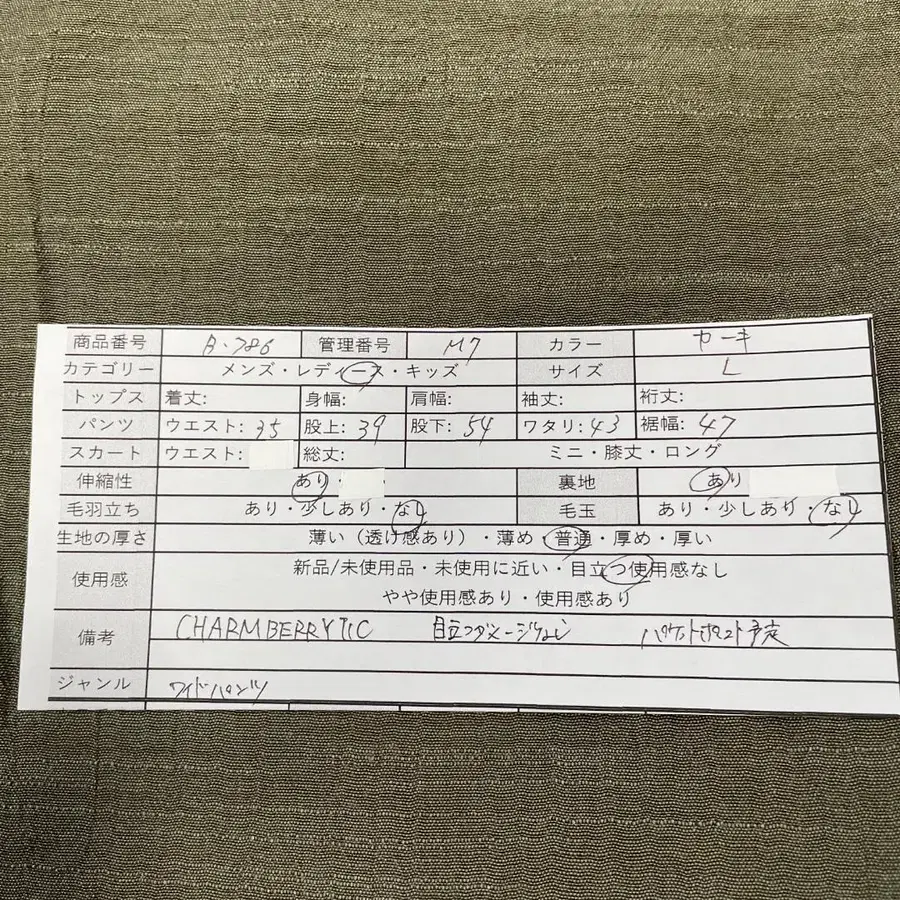 商品番号 B-786 管理番号 M7 カラー カーキ
カテゴリー メンズ・レディース・キッズ サイズ L
トップス 着丈: 身幅: 肩幅: 袖丈: 裄丈:
パンツ ウエスト: 35 股上: 39 股下: 54 ワタリ: 43 裾幅: 47
スカート ウエスト: 総丈: ミニ・膝丈・ロング
伸縮性 あり・ 裏地 あり
毛羽立ち あり・少しあり・なし 毛玉 あり・少しあり・なし
生地の厚さ 薄い（透け感あり）・薄め・普通・厚め・厚い
使用感 新品/未使用品・未使用に近い・目立つ使用感なし
やや使用感あり・使用感あり
備考 CHARMBERRYTIC 目立つダメージなし
ジャンル ワイドパンツ